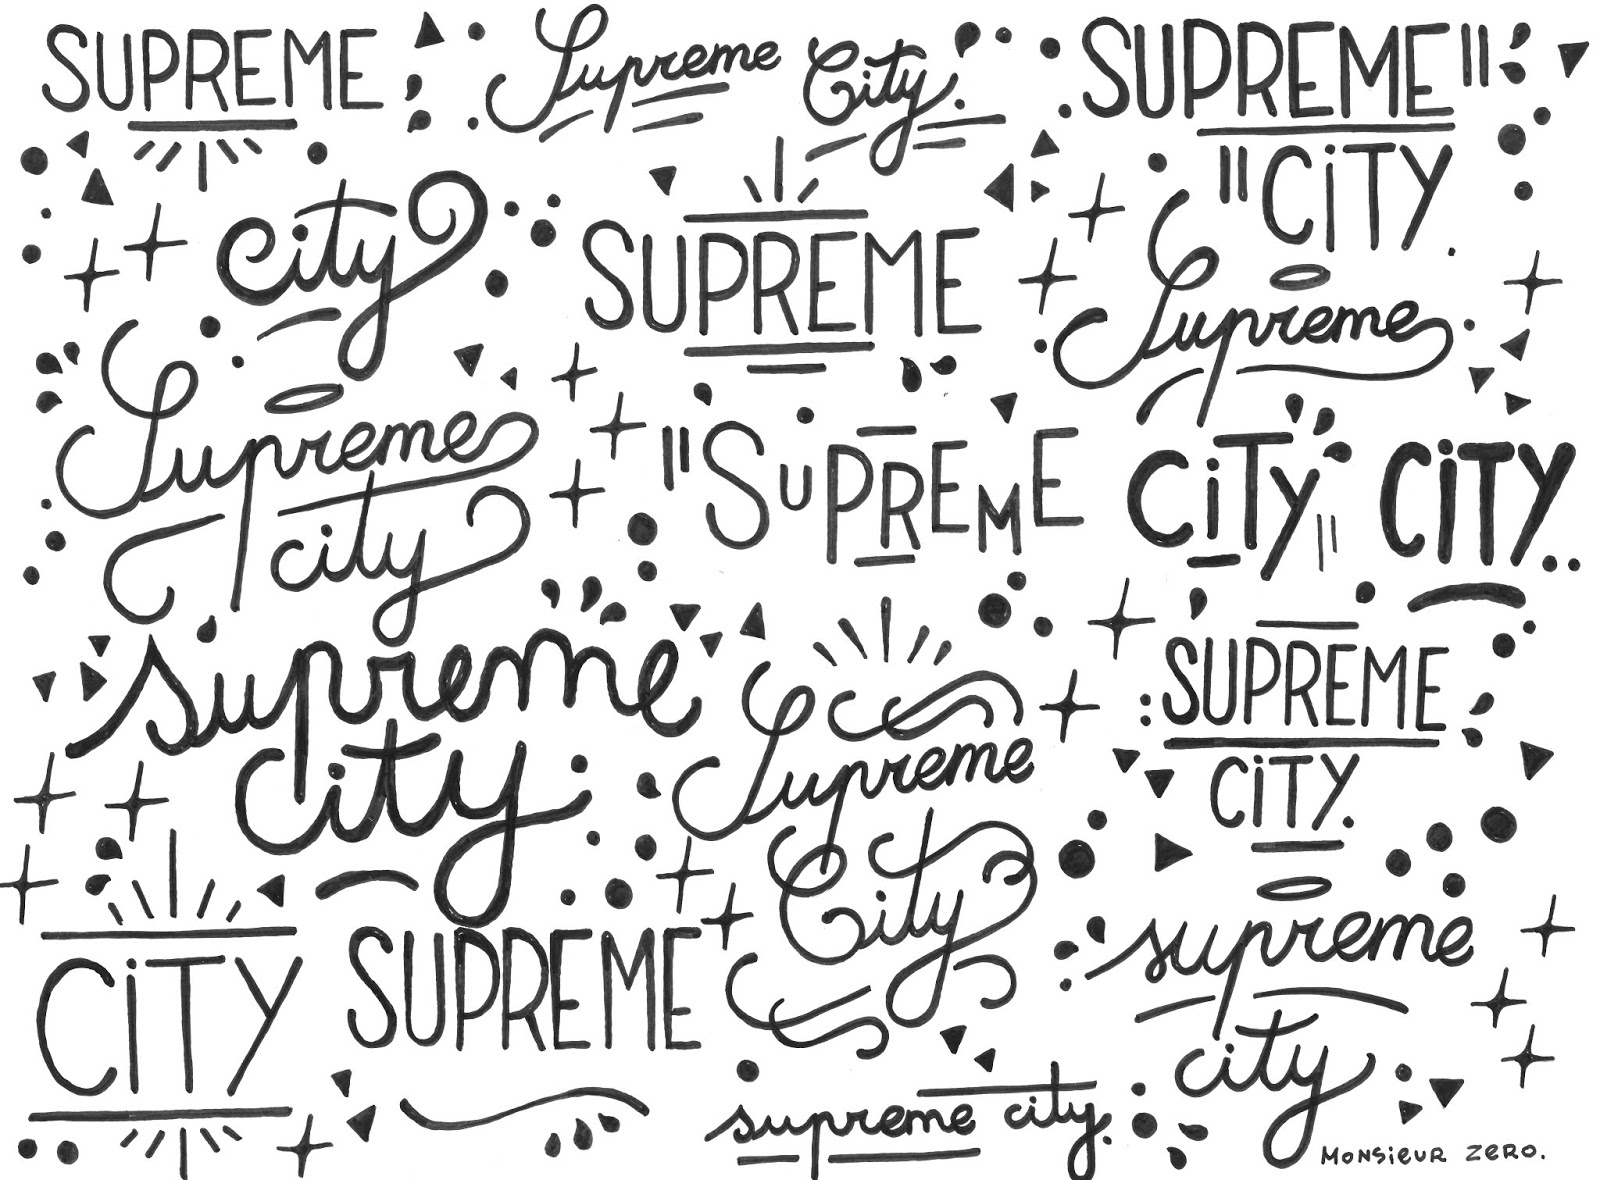 SUPREME
Supreme City.
SUPREME"
"CiTY.
city
SUPREME
Supreme
Supreme
city
"SuPREmE
CiTy"
CiTY..
supreme
city
Supreme
City
SUPREME
CiTY.
CiTY
SUPREME
supreme
city
supreme city.
MONSiEUR ZERO.